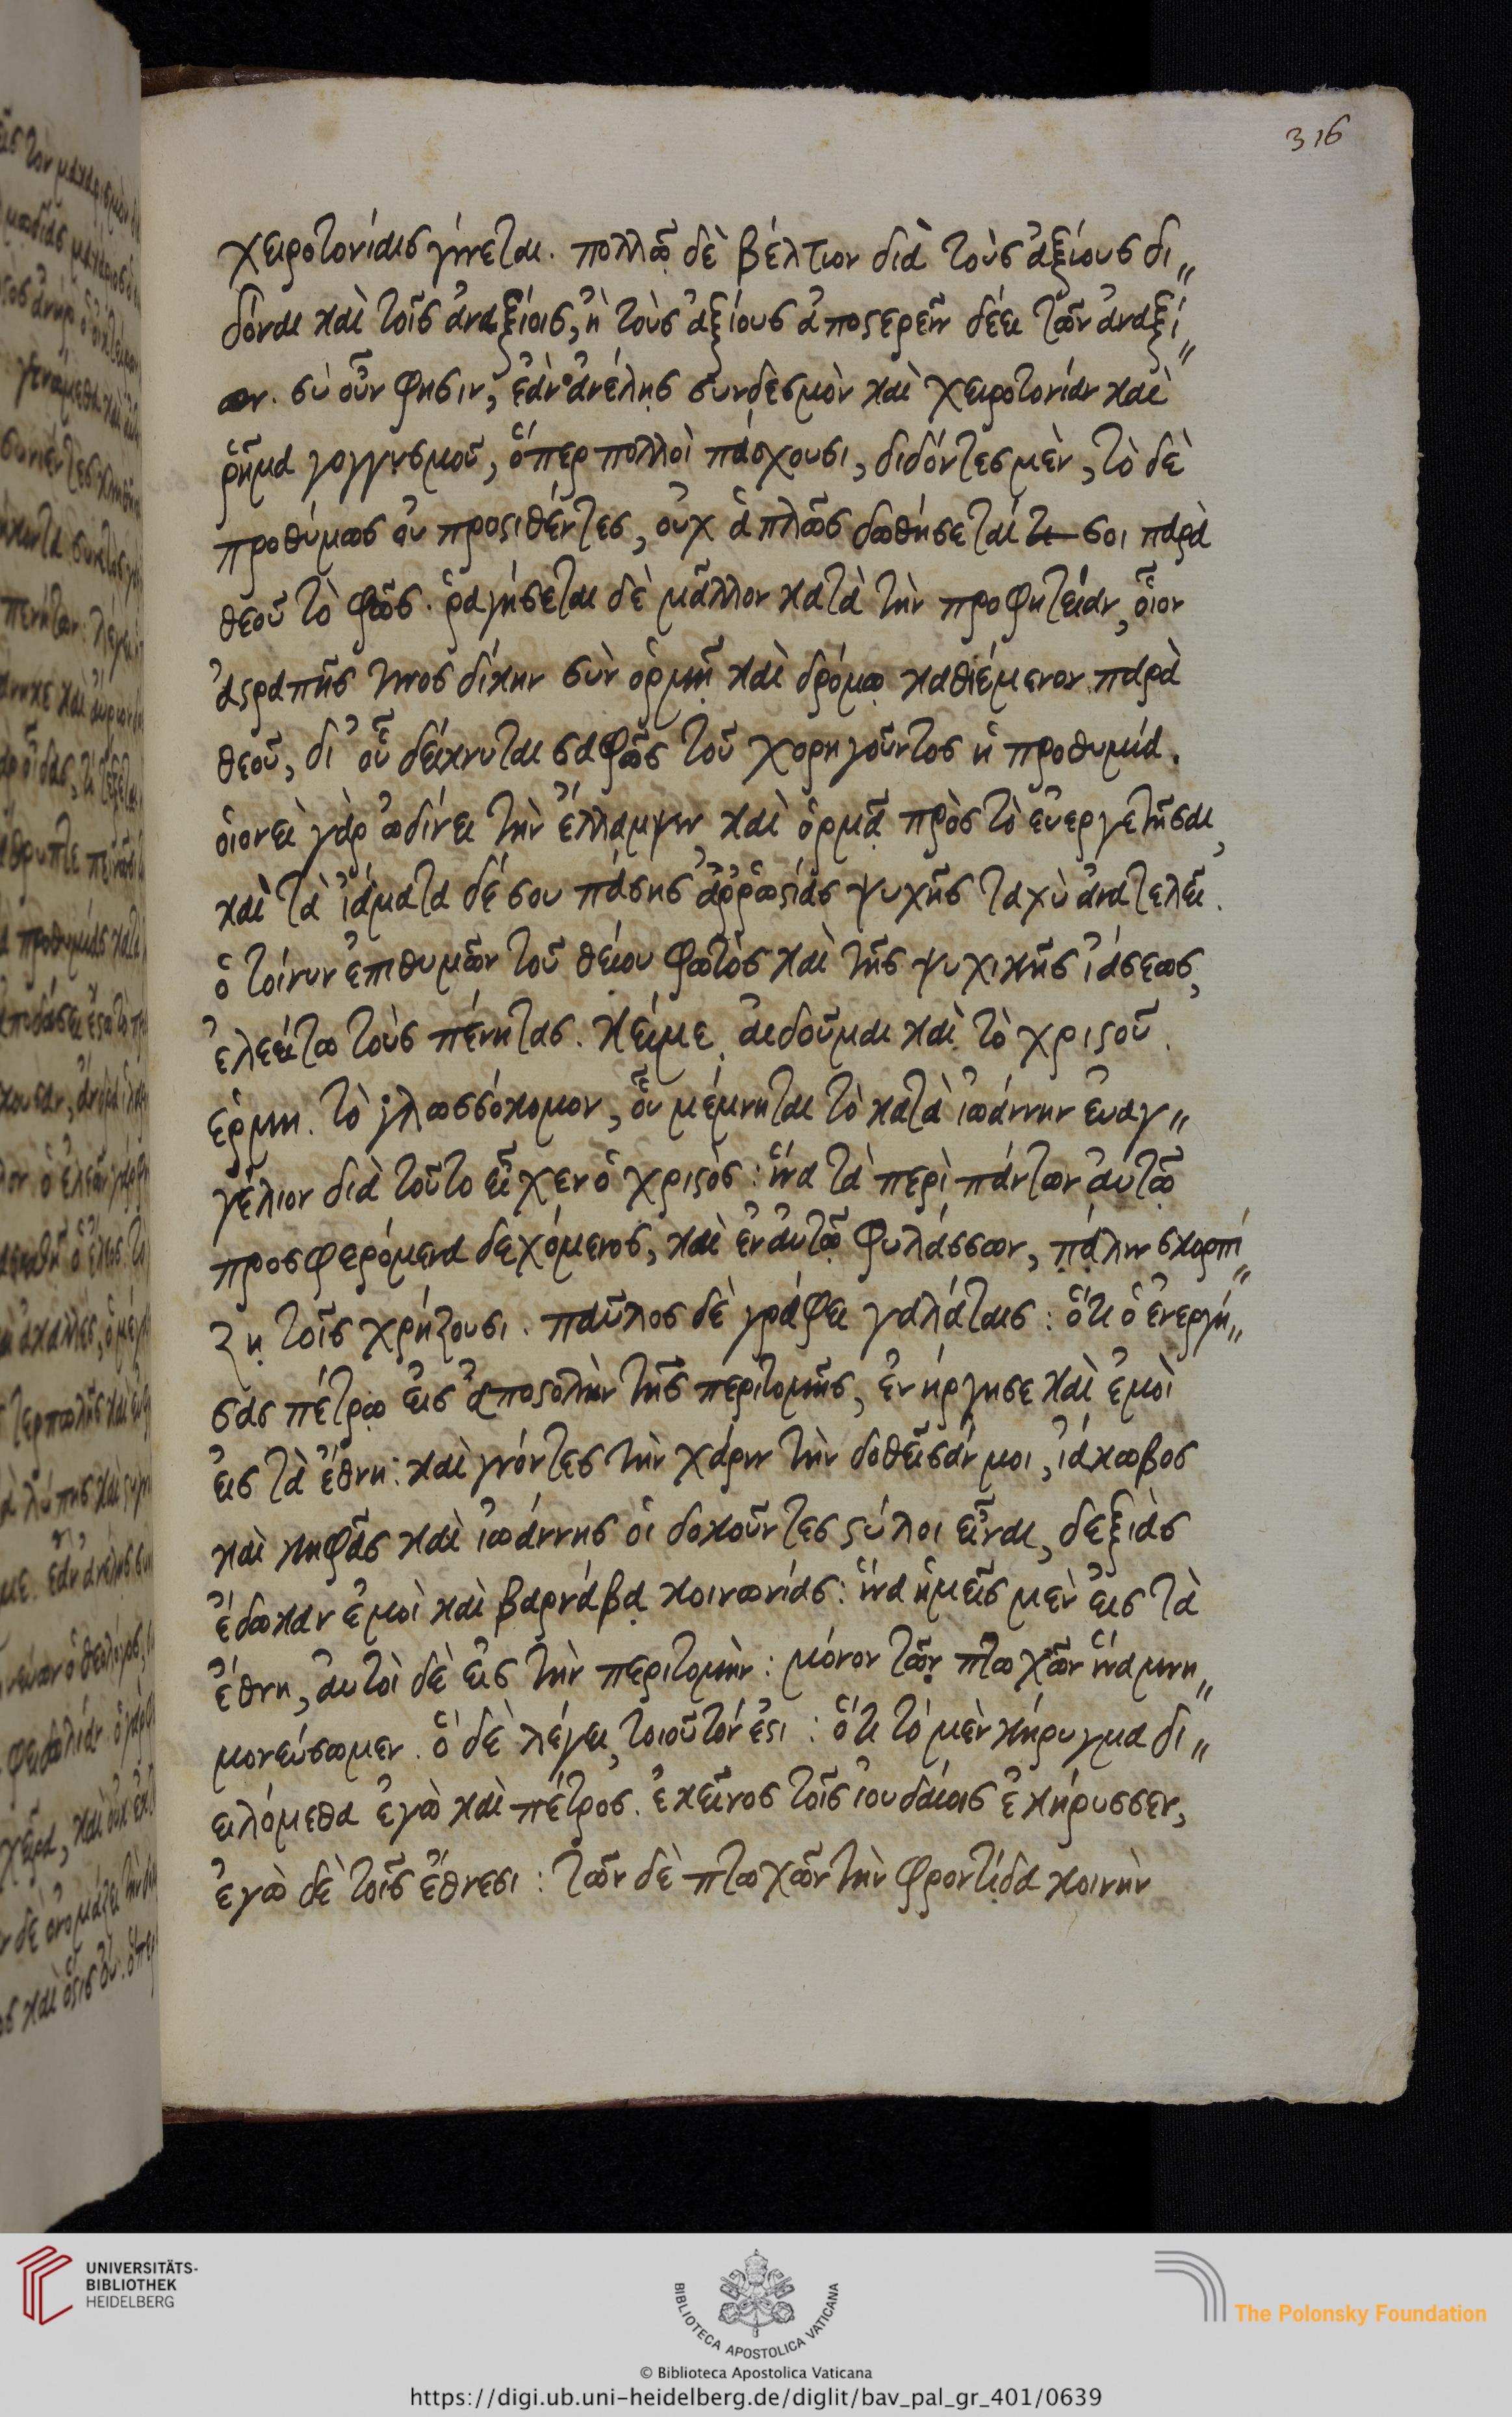 316
χειροτονίαις γίνεται. πολλῶ δὲ βέλτιον διὰ τοὺς ἀξίους δι„
δόναι καὶ τοῖς ἀναξίοις, ἢ τοὺς ἀξίους ἀποστερεῖν δέει τῶν ἀναξί„
ων. σὺ οὖν φησιν, ἐὰν ἀνέλῃς σύνδεσμὸν καὶ χειροτονίαν καὶ
ῥῆμα γογγυσμοῦ, ὅπερ πολλοὶ πάσχουσι, διδόντες μὲν, τὸ δὲ
προθύμως οὐ προστιθέντες, οὐχ ἁπλῶς δωθήσεταί τι σοι παρὰ
θεοῦ τὸ φῶς. ῥαγήσεται δὲ μᾶλλον κατὰ τὴν προφητείαν, οἷον
ἀστραπῆς τινος δίκην σὺν ὁρμῇ καὶ δρόμῳ καθιέμενον παρὰ
θεοῦ, δι’ οὗ δείκνυται σαφῶς τοῦ χορηγοῦντος ἡ προθυμία.
οἱονεὶ γὰρ ὠδίνει τὴν ἔλλαμψιν, καὶ ὁρμᾷ πρὸς τὸ εὐεργετῆσαι,
καὶ τὰ ἰάματα δέ σου πάσης ἀῤῥωστίας ψυχῆς ταχὺ ἀνατελεῖ.
ὁ τοίνυν ἐπιθυμῶν τοῦ θείου φωτὸς καὶ τῆς ψυχικῆς ἰάσεως,
ἐλεείτω τοὺς πένητας. κείμε. αἰδοῦμαι καὶ τὸ χριστοῦ.
ἑρμη. τὸ γλωσσόκομον, οὗ μέμνηται τὸ κατὰ ἰωάννην εὐαγ„
γέλιον διὰ τοῦτο εἶχεν ὁ χριστὸς: ἵνα τὰ περὶ πάντων αὐτῷ
προσφερόμενα δεχόμενος, καὶ ἐν αὐτῷ φυλάσσων, πάλιν σκορπί„
ζῃ τοῖς χρήζουσι. παῦλος δὲ γράφει γαλάταις: ὅτι ὁ ἐνεργή„
σας πέτρῳ εἰς ἀποστολὴν τῆς περιτομῆς, ἐνήργησε καὶ ἐμοὶ
εἰς τὰ ἔθνη: καὶ γνόντες τὴν χάριν τὴν δοθεῖσάν μοι, ἰάκωβος
καὶ κηφᾶς καὶ ἰωάννης οἱ δοκοῦντες στύλοι εἶναι, δεξιὰς
ἔδωκαν ἐμοὶ καὶ βαρνάβᾳ κοινωνίας: ἵνα ἡμεῖς μὲν εἰς τὰ
ἔθνη, αὐτοὶ δὲ εἰς τὴν περιτομὴν: μόνον τῶν πτωχῶν ἵνα μνη„
μονεύσωμεν. ὃ δὲ λέγει, τοιοῦτόν ἐστι: ὅτι τὸ μὲν κήρυγμα δι„
ειλόμεθα ἐγὼ καὶ πέτρος. ἐκεῖνος τοῖς ἰουδαίοις ἐκήρυσσεν,
ἐγὼ δὲ τοῖς ἔθνεσι: τῶν δὲ πτωχῶν τὴν φροντίδα κοινὴν
UNIVERSITÄTS-
BIBLIOTHEK
HEIDELBERG
BIBLIOTECA APOSTOLICA VATICANA
The Polonsky Foundation
© Biblioteca Apostolica Vaticana
https://digi.ub.uni-heidelberg.de/diglit/bav_pal_gr_401/0639